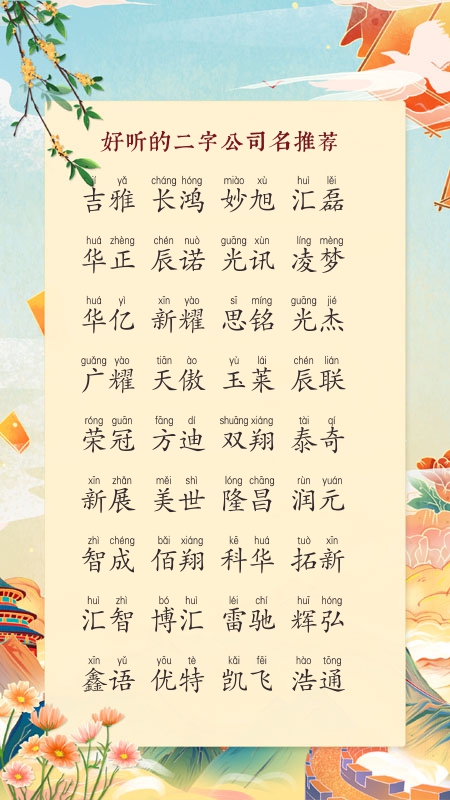 好听的二字公司名推荐
yǎ cháng hóng miào xù huì lěi
吉雅 长鸿 妙旭 汇磊
huá zhèng chén nuò guāng xùn líng mèng
华正 辰诺 光讯 凌梦
huá yì xīn yào sī míng guāng jié
华亿 新耀 思铭 光杰
guǎng yào tiān ào yù lái chén lián
广耀 天傲 玉莱 辰联
róng guān fāng dí shuāng xiáng tài qí
荣冠 方迪 双翔 泰奇
xīn zhǎn měi shì lóng chāng rùn yuán
新展 美世 隆昌 润元
zhì chéng bǎi xiáng kē huá tuò xīn
智成 佰翔 科华 拓新
huì zhì bó huì léi chí huī hóng
汇智 博汇 雷驰 辉弘
xīn yǔ yōu tè kǎi fēi hào tōng
鑫语 优特 凯飞 浩通